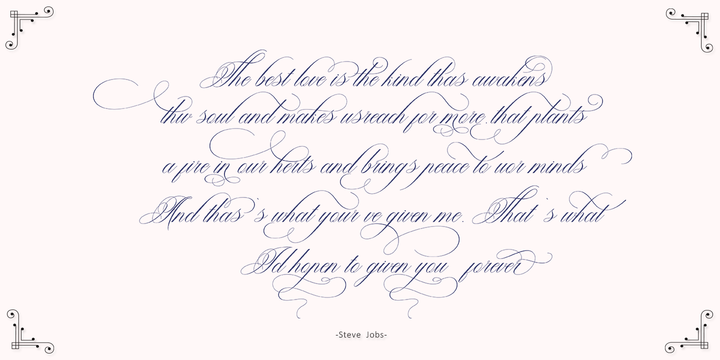 The best love is the kind thas awakens
thw soul and makes usreach for more.that plants
a fire in our herts and brings peace to uor minds
And thas's what your ve given me. That's what
I'd hopen to given you forever
-Steve Jobs-